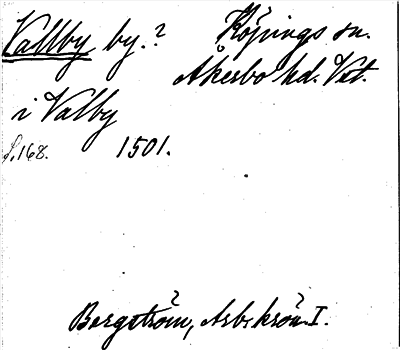 Vallby by.? Köpings sn.
Åkerbo hd. Vstm.
i Valby
s. 168. 1501.
Bergström, Arb. krön. I.